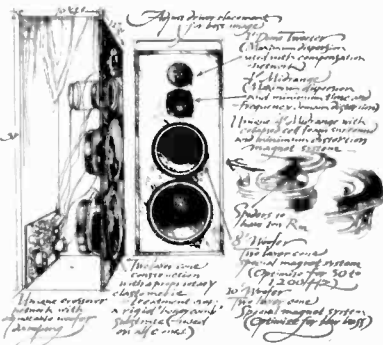 Adjust driver placement
for best image
1" Dome Tweeter
(Maximum dispersion
used with compensation
network)
2" Midrange
(Maximum dispersion
and minimum time and
frequency domain distortion)
Unique 8" Midrange with
foam surround
and minimum distortion
magnet system
Spiders to
have low Rm
8" Woofer
Two layer cone
Special magnet system
(Optimize for 50 to
1,200 Hz)
10" Woofer
Two layer cone
Special magnet system
(Optimize for low bass)
Two layer cone
construction
with a proprietary
treatment on
a rigid "honeycomb"
substance (used
on all cones)
Unique crossover
network with
adjustable woofer
damping